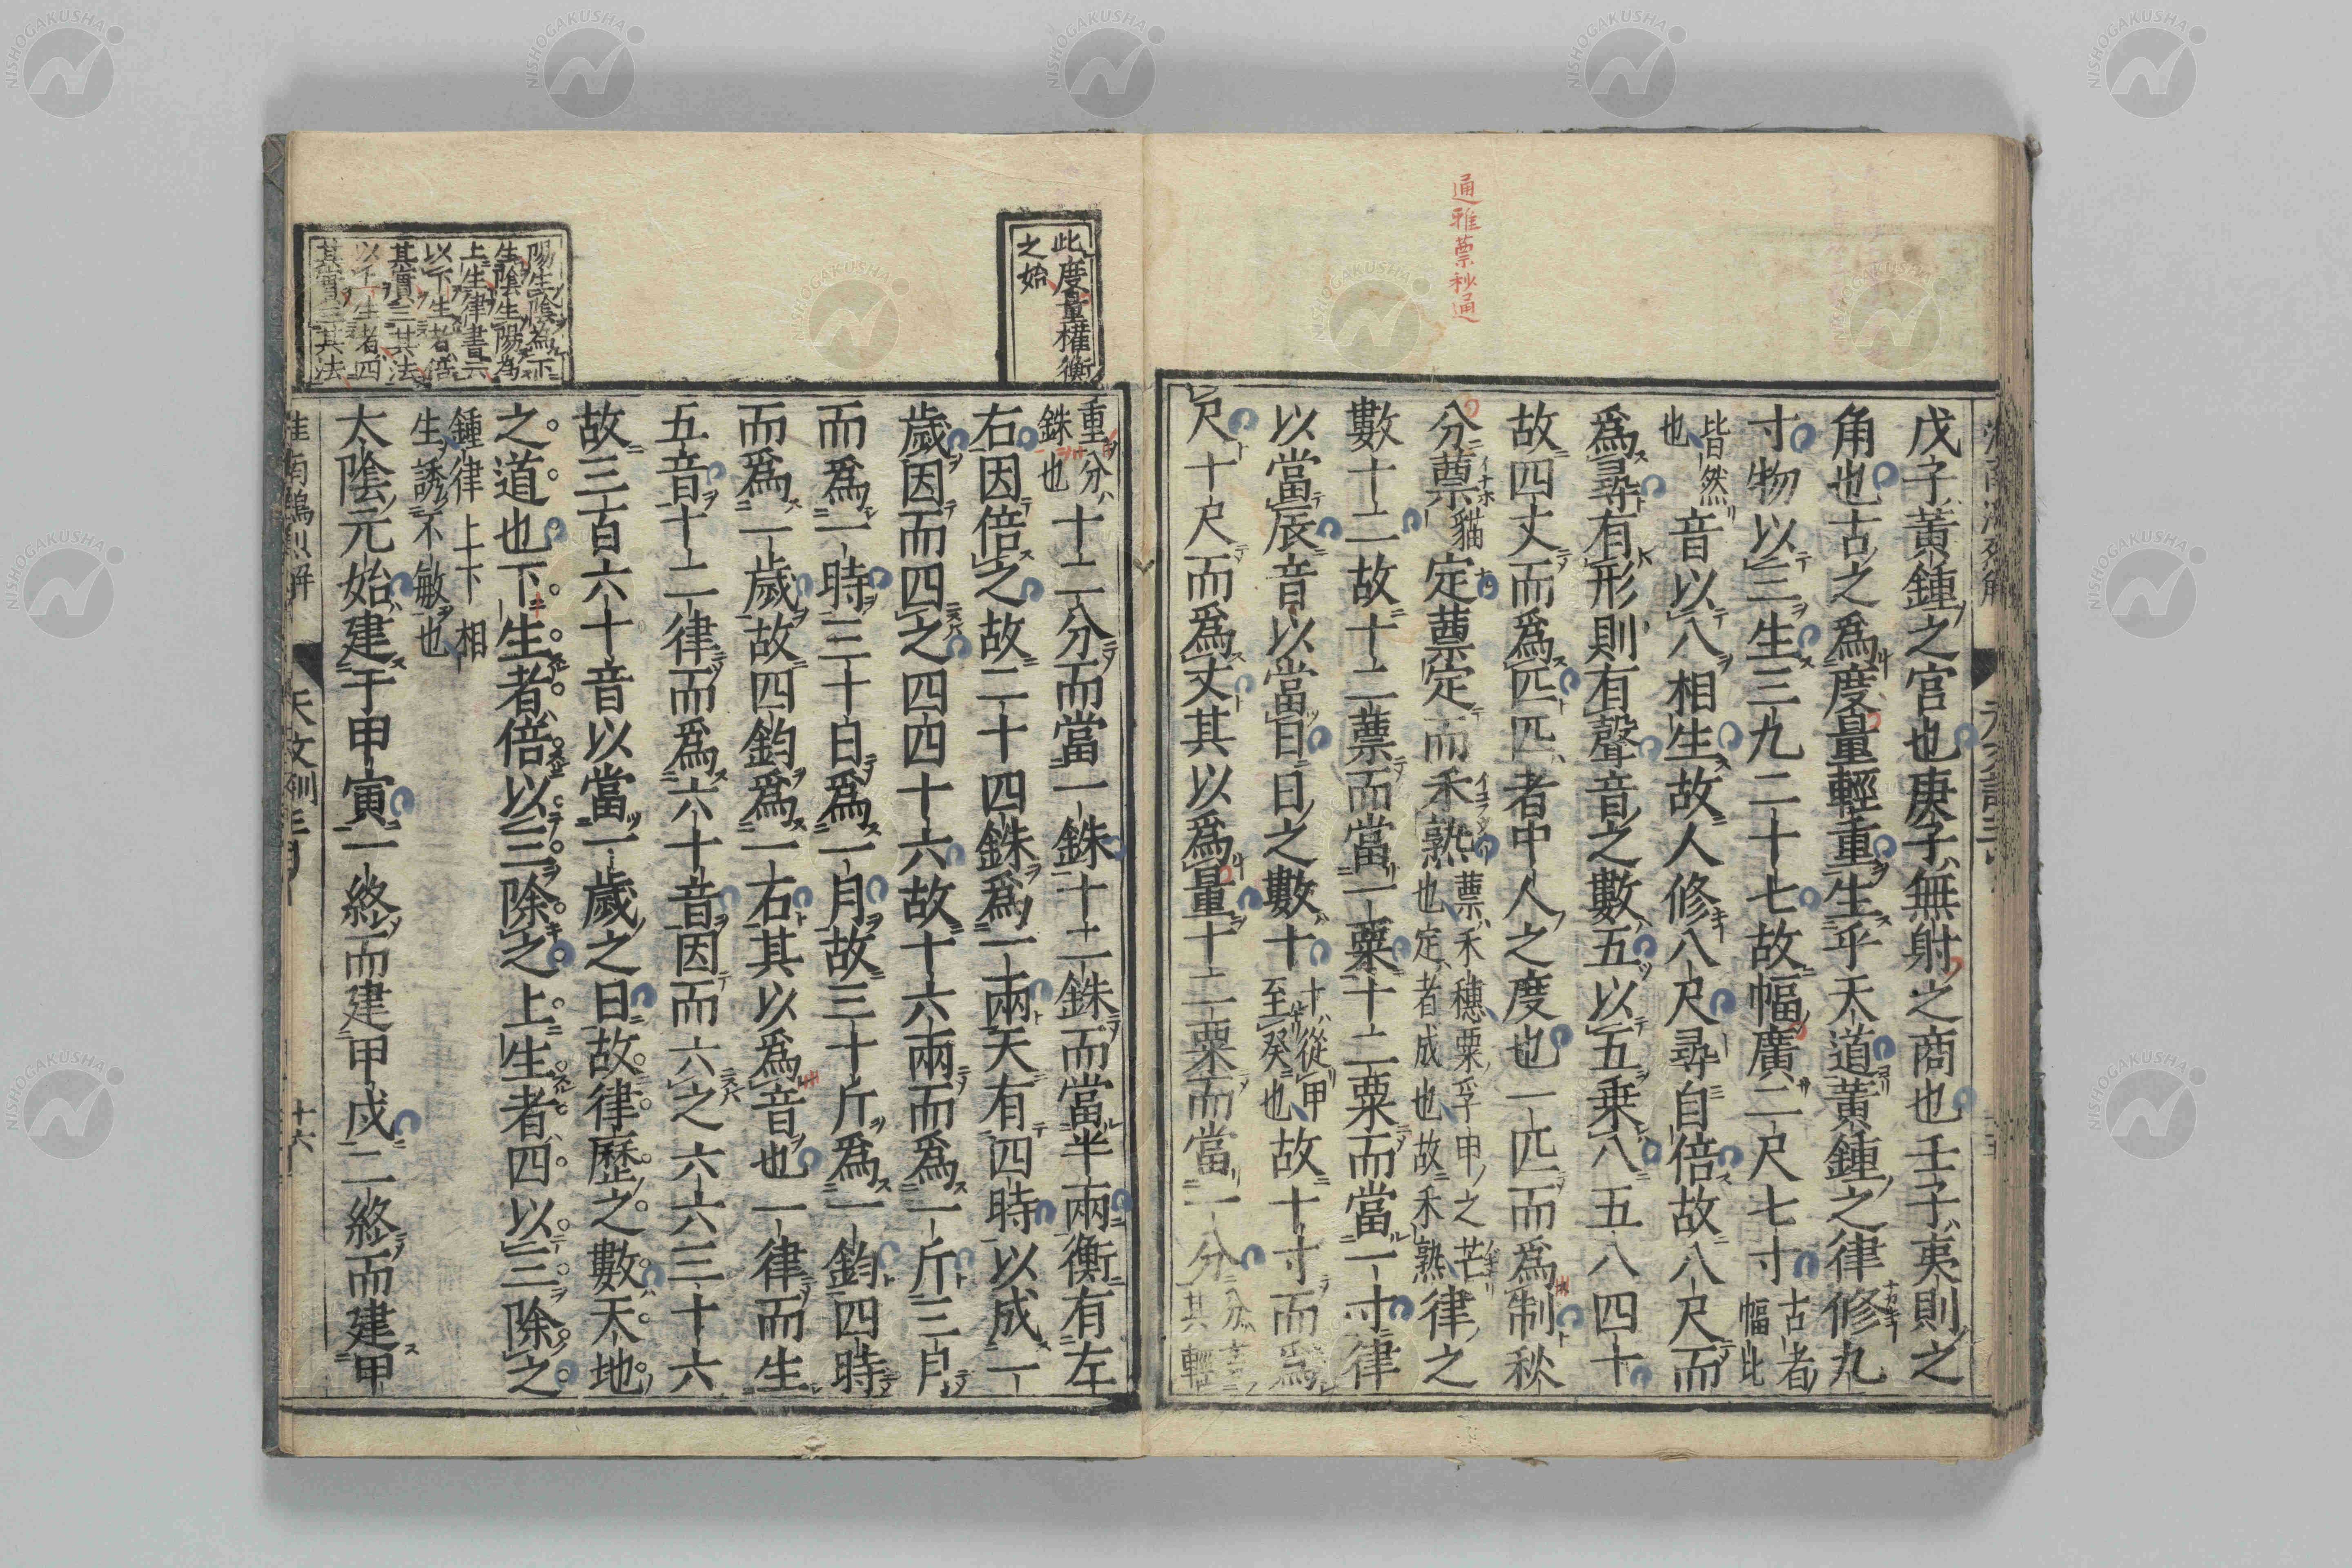 通雅蔈秒通
戊子黃鍾之宮也庚子無射之商也壬子夷則之
角也古之爲度量輕重生乎天道黃鍾之律修九
寸物以三生三九二十七故幅廣二尺七寸古者幅比
皆然也音以八相生故人修八尺尋自倍故八尺而
爲尋有形則有聲音之數五以五乘八五八四十
故四丈而爲匹匹者中人之度也一匹而爲制秋
分蔈定蔈定而禾熟蔈禾穗粟孚甲之芒也定者成也故禾熟律之
數十二故十二蔈而當一粟十二粟而當一寸律
以當辰音以當日日之數十十從甲至癸也故十寸而爲
尺十尺而爲丈其以爲量十二粟而當一分其輕
此度量權衡
之始
重分銖也十二分而當一銖十二銖而當半兩衡有左
右因倍之故二十四銖爲一兩天有四時以成一
歲因而四之四四十六故十六兩而爲一斤三月
而爲一時三十日爲一月故三十斤爲一鈞四時
而爲一歲故四鈞爲一右其以爲音也一律而生
五音十二律而爲六十音因而六之六六三十六
故三百六十音以當一歲之日故律歷之數天地
之道也下生者倍以三除之上生者四以三除之
鍾律上下相
生誘不敏也
大陰元始建于甲寅一終而建甲戌二終而建甲
陽生陰爲下
生陰生陽爲
上生律書云
以下生者倍
其實三其法
以上生者四
其實三其法
天文訓三
十六
NISHOGAKUSHA